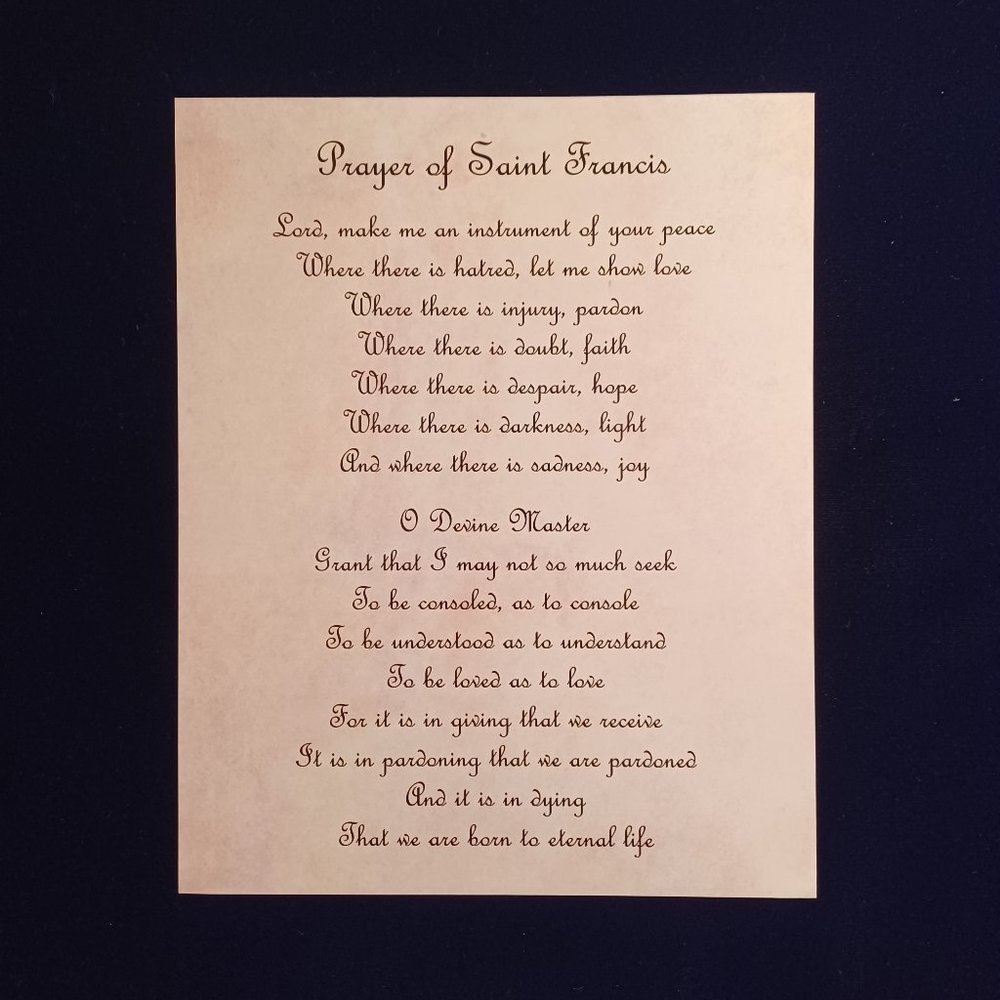 Prayer of Saint Francis
Lord, make me an instrument of your peace
Where there is hatred, let me show love
Where there is injury, pardon
Where there is doubt, faith
Where there is despair, hope
Where there is darkness, light
And where there is sadness, joy
O Devine Master
Grant that I may not so much seek
To be consoled, as to console
To be understood as to understand
To be loved as to love
For it is in giving that we receive
It is in pardoning that we are pardoned
And it is in dying
That we are born to eternal life